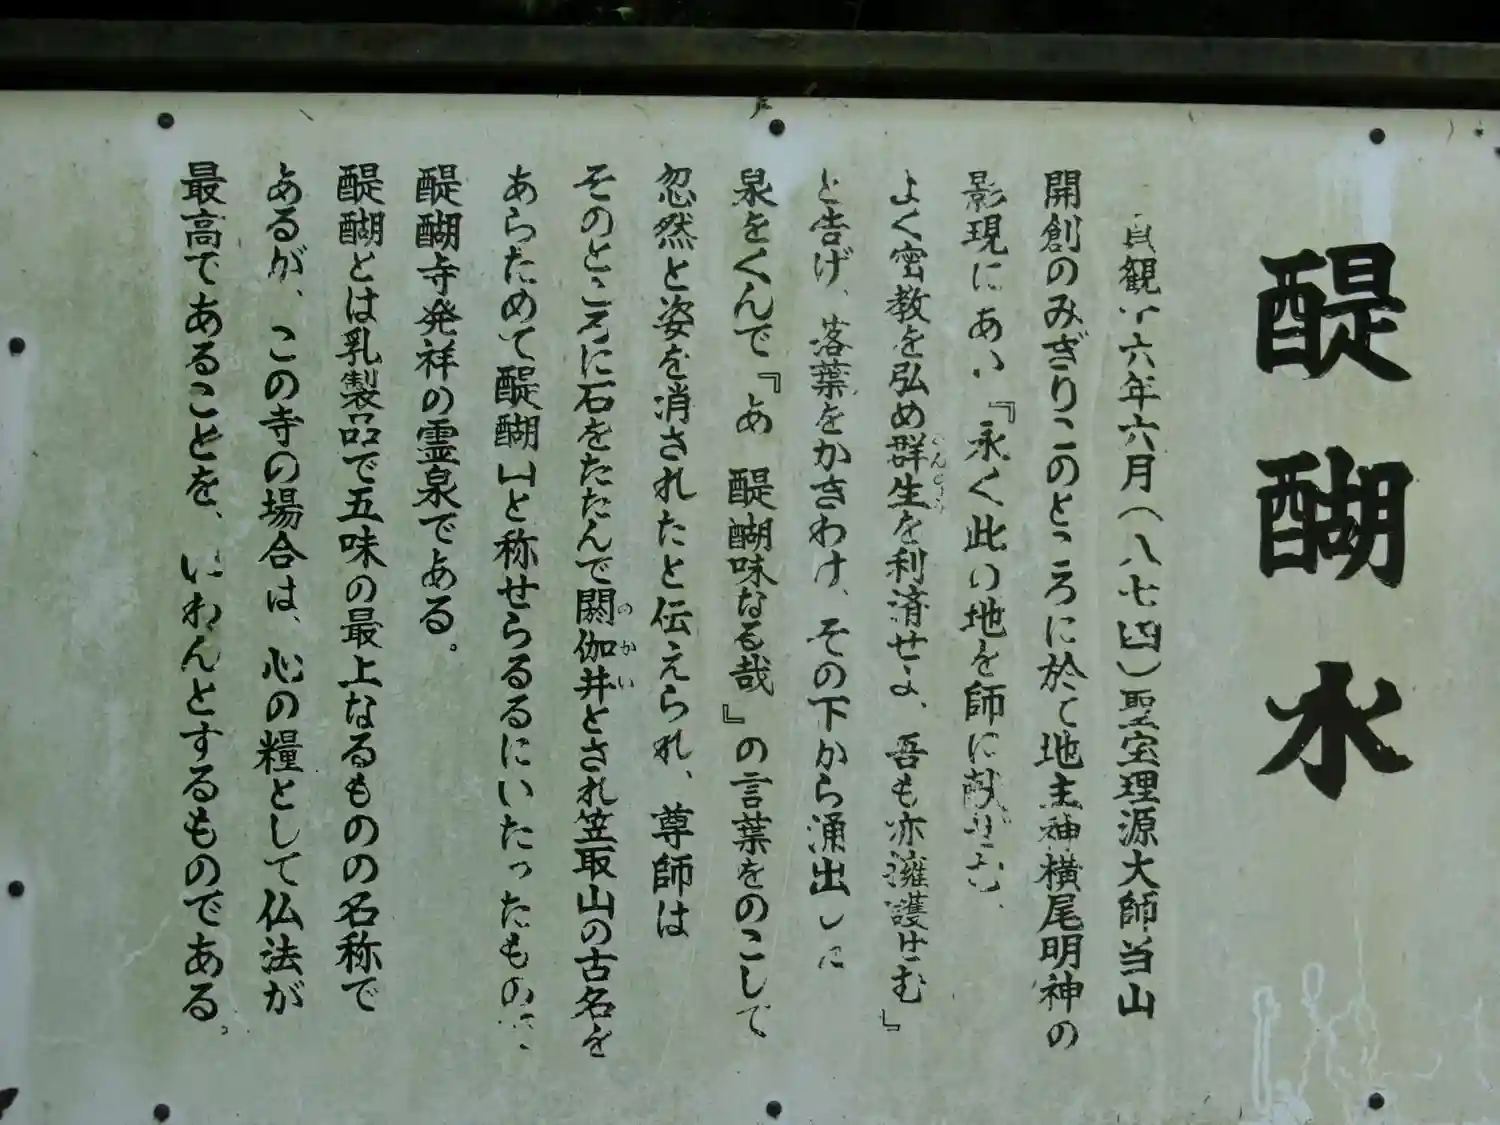 醍醐水
貞観十六年六月(八七四)聖宝理源大師当山
開創のみぎりこのところに於て地主神横尾明神の
影現にあい『永く此の地を師に献ぜむ、
よく密教を弘め群生を利済せよ、吾も亦擁護せむ』
と告げ、落葉をかきわけ、その下から涌出しに
泉をくんで『あゝ醍醐味なる哉』の言葉をのこして
忽然と姿を消されたと伝えられ、尊師は
そのところに石をたたんで閼伽井とされ笠取山の古名を
のかい
あらためて醍醐山と称せらるるにいたったもので、
醍醐寺発祥の霊泉である。
醍醐とは乳製品で五味の最上なるものの名称で
あるが、この寺の場合は、心の糧として仏法が
最高であることを、いわんとするものである。